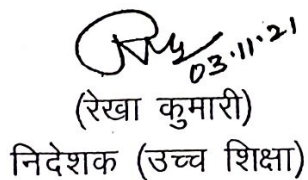 03.11.21
(रेखा कुमारी)
निदेशक (उच्च शिक्षा)